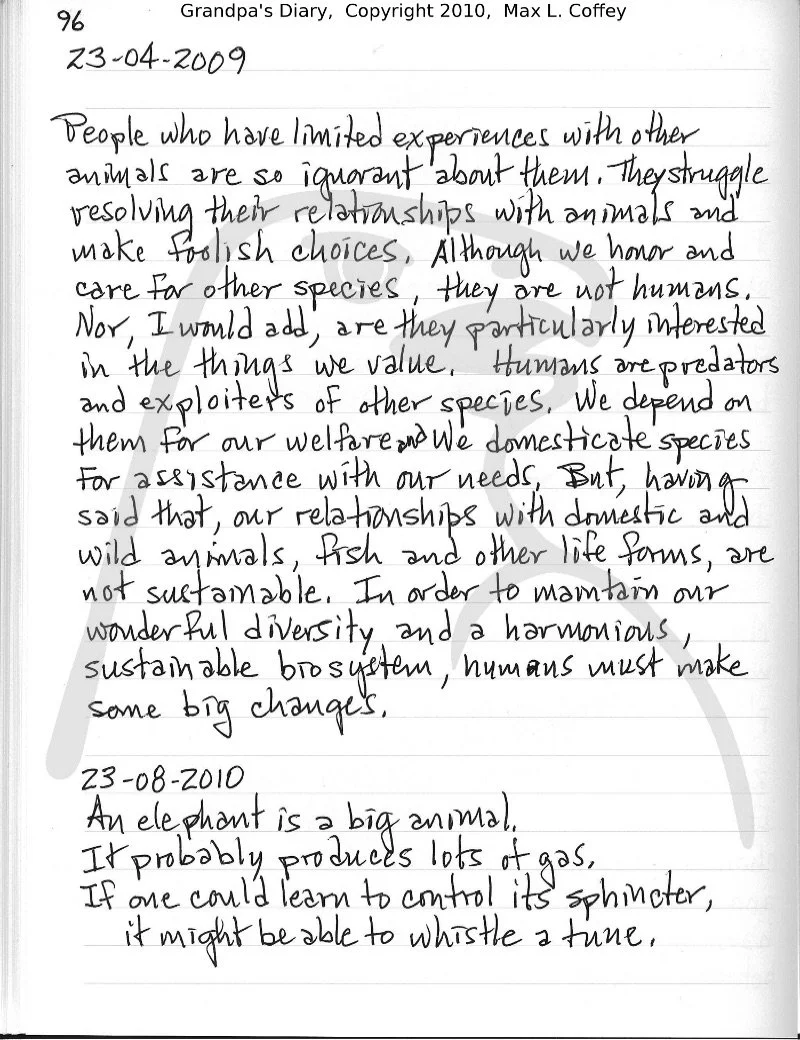 Grandpa's Diary, Copyright 2010, Max L. Coffey
96
23-04-2009
People who have limited experiences with other
animals are so ignorant about them. They struggle
resolving their relationships with animals and
make foolish choices. Although we honor and
care for other species, they are not humans.
Nor, I would add, are they particularly interested
in the things we value. Humans are predators
and exploiters of other species. We depend on
them for our welfare and We domesticate species
for assistance with our needs. But, having
said that, our relationships with domestic and
wild animals, fish and other life forms, are
not sustainable. In order to maintain our
wonderful diversity and a harmonious,
sustainable biosystem, humans must make
some big changes.
23-08-2010
An elephant is a big animal.
It probably produces lots of gas.
If one could learn to control its sphincter,
it might be able to whistle a tune.